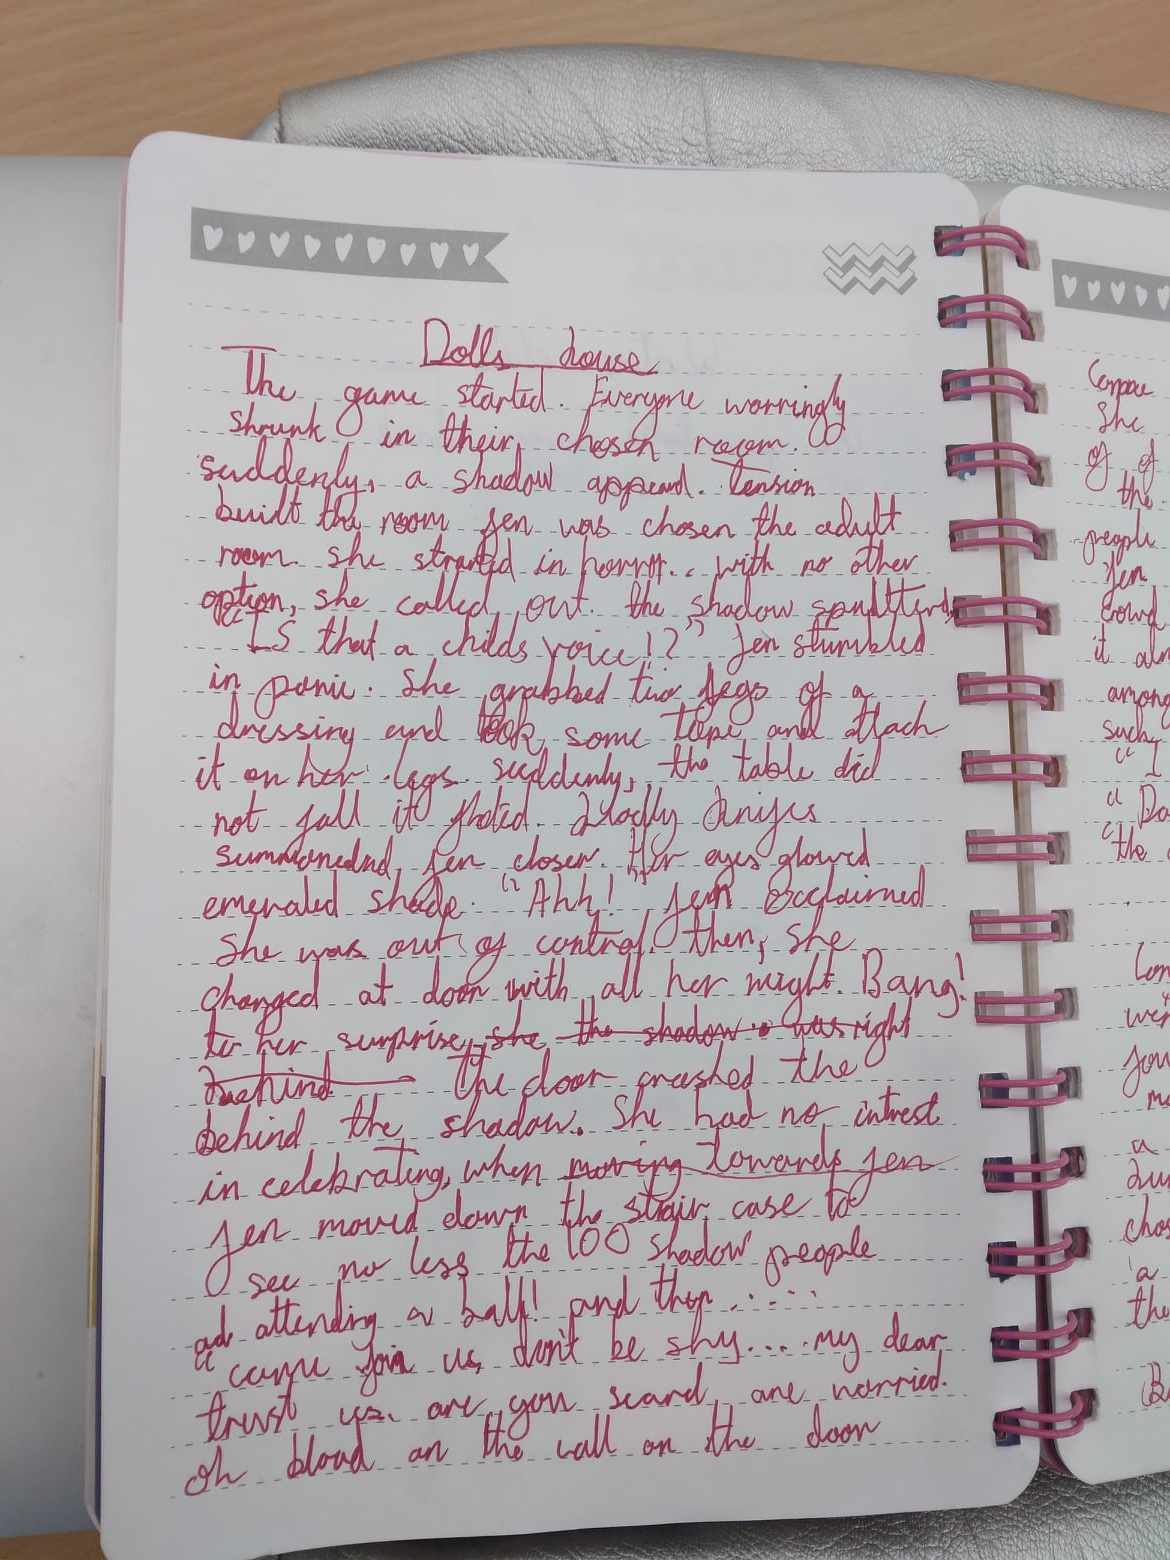 Dolls house
The game started. Everyone worringly
shrunk in their chosen room.
suddenly, a shadow appeard. Tension
built the room Jen was chosen the adult
room. she in horror.. with no other
option, she called out. the shadow
"IS that a childs voice!?" Jen stumbled
in panic. She grabbed two legs of a
dressing and took some tape and attach
it on her legs. suddenly, the table did
not fall it floted. Deadly knifes
Jen closer. Her eyes glowed
emeraled shade. "Ahh!" Jen
She was out of control. then, she
charged at door with all her might. Bang!
to her surprise, she the shadow was right
behind the door crashed the
behind the shadow. She had no intrest
in celebrating, when moving towards Jen
Jen moved down the stair case to
see no less the 100 shadow people
attending a ball! and then .....
"come join us, don't be shy.... my dear
trust us. are you scard, are worried.
oh blood on the wall on the door
Compare
She
of of
the
people
Jen
it
among
such
"I
"the
a
chos
a
the